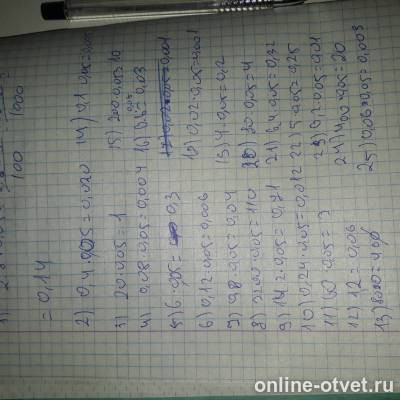 100 1000
= 0,14
2) 0,4·0,05=0,020
3) 20·0,05=1
4) 0,08·0,05=0,004
5) 6·0,05= 0,3
6) 0,12·0,05=0,006
8) 2200·0,05=110
10) 0,24·0,05=0,012
11) 60·0,05=3
14) 0,1·0,05=0,005
15) 200·0,05=10
16) 0,6 0,05=0,03
18) 0,02·0,05=0,001
19) 4·0,05=0,2
20) 80·0,05=4
21) 6,4·0,05=0,32
22) 5·0,05=0,25
23) 0,2·0,05=0,01
24) 400·0,05=20
25) 0,06·0,05=0,003
online-otvet.ru